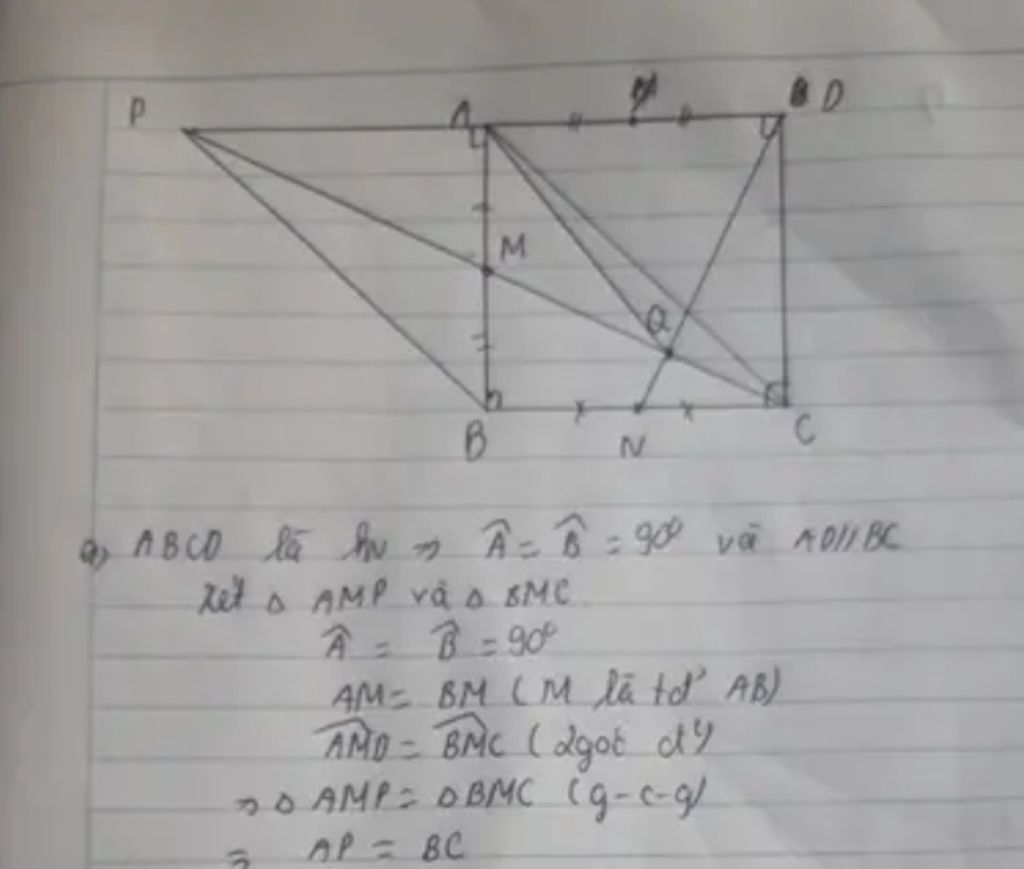 P A D
M
Q
B N C
a) ABCD là hv => Â = B̂ = 90° và AD//BC
Xét Δ AMP và Δ BMC
Â = B̂ = 90°
AM = BM ( M là tđ' AB)
= BMC ( 2góc đ²)
=> Δ AMP = Δ BMC (g-c-g)
AP = BC